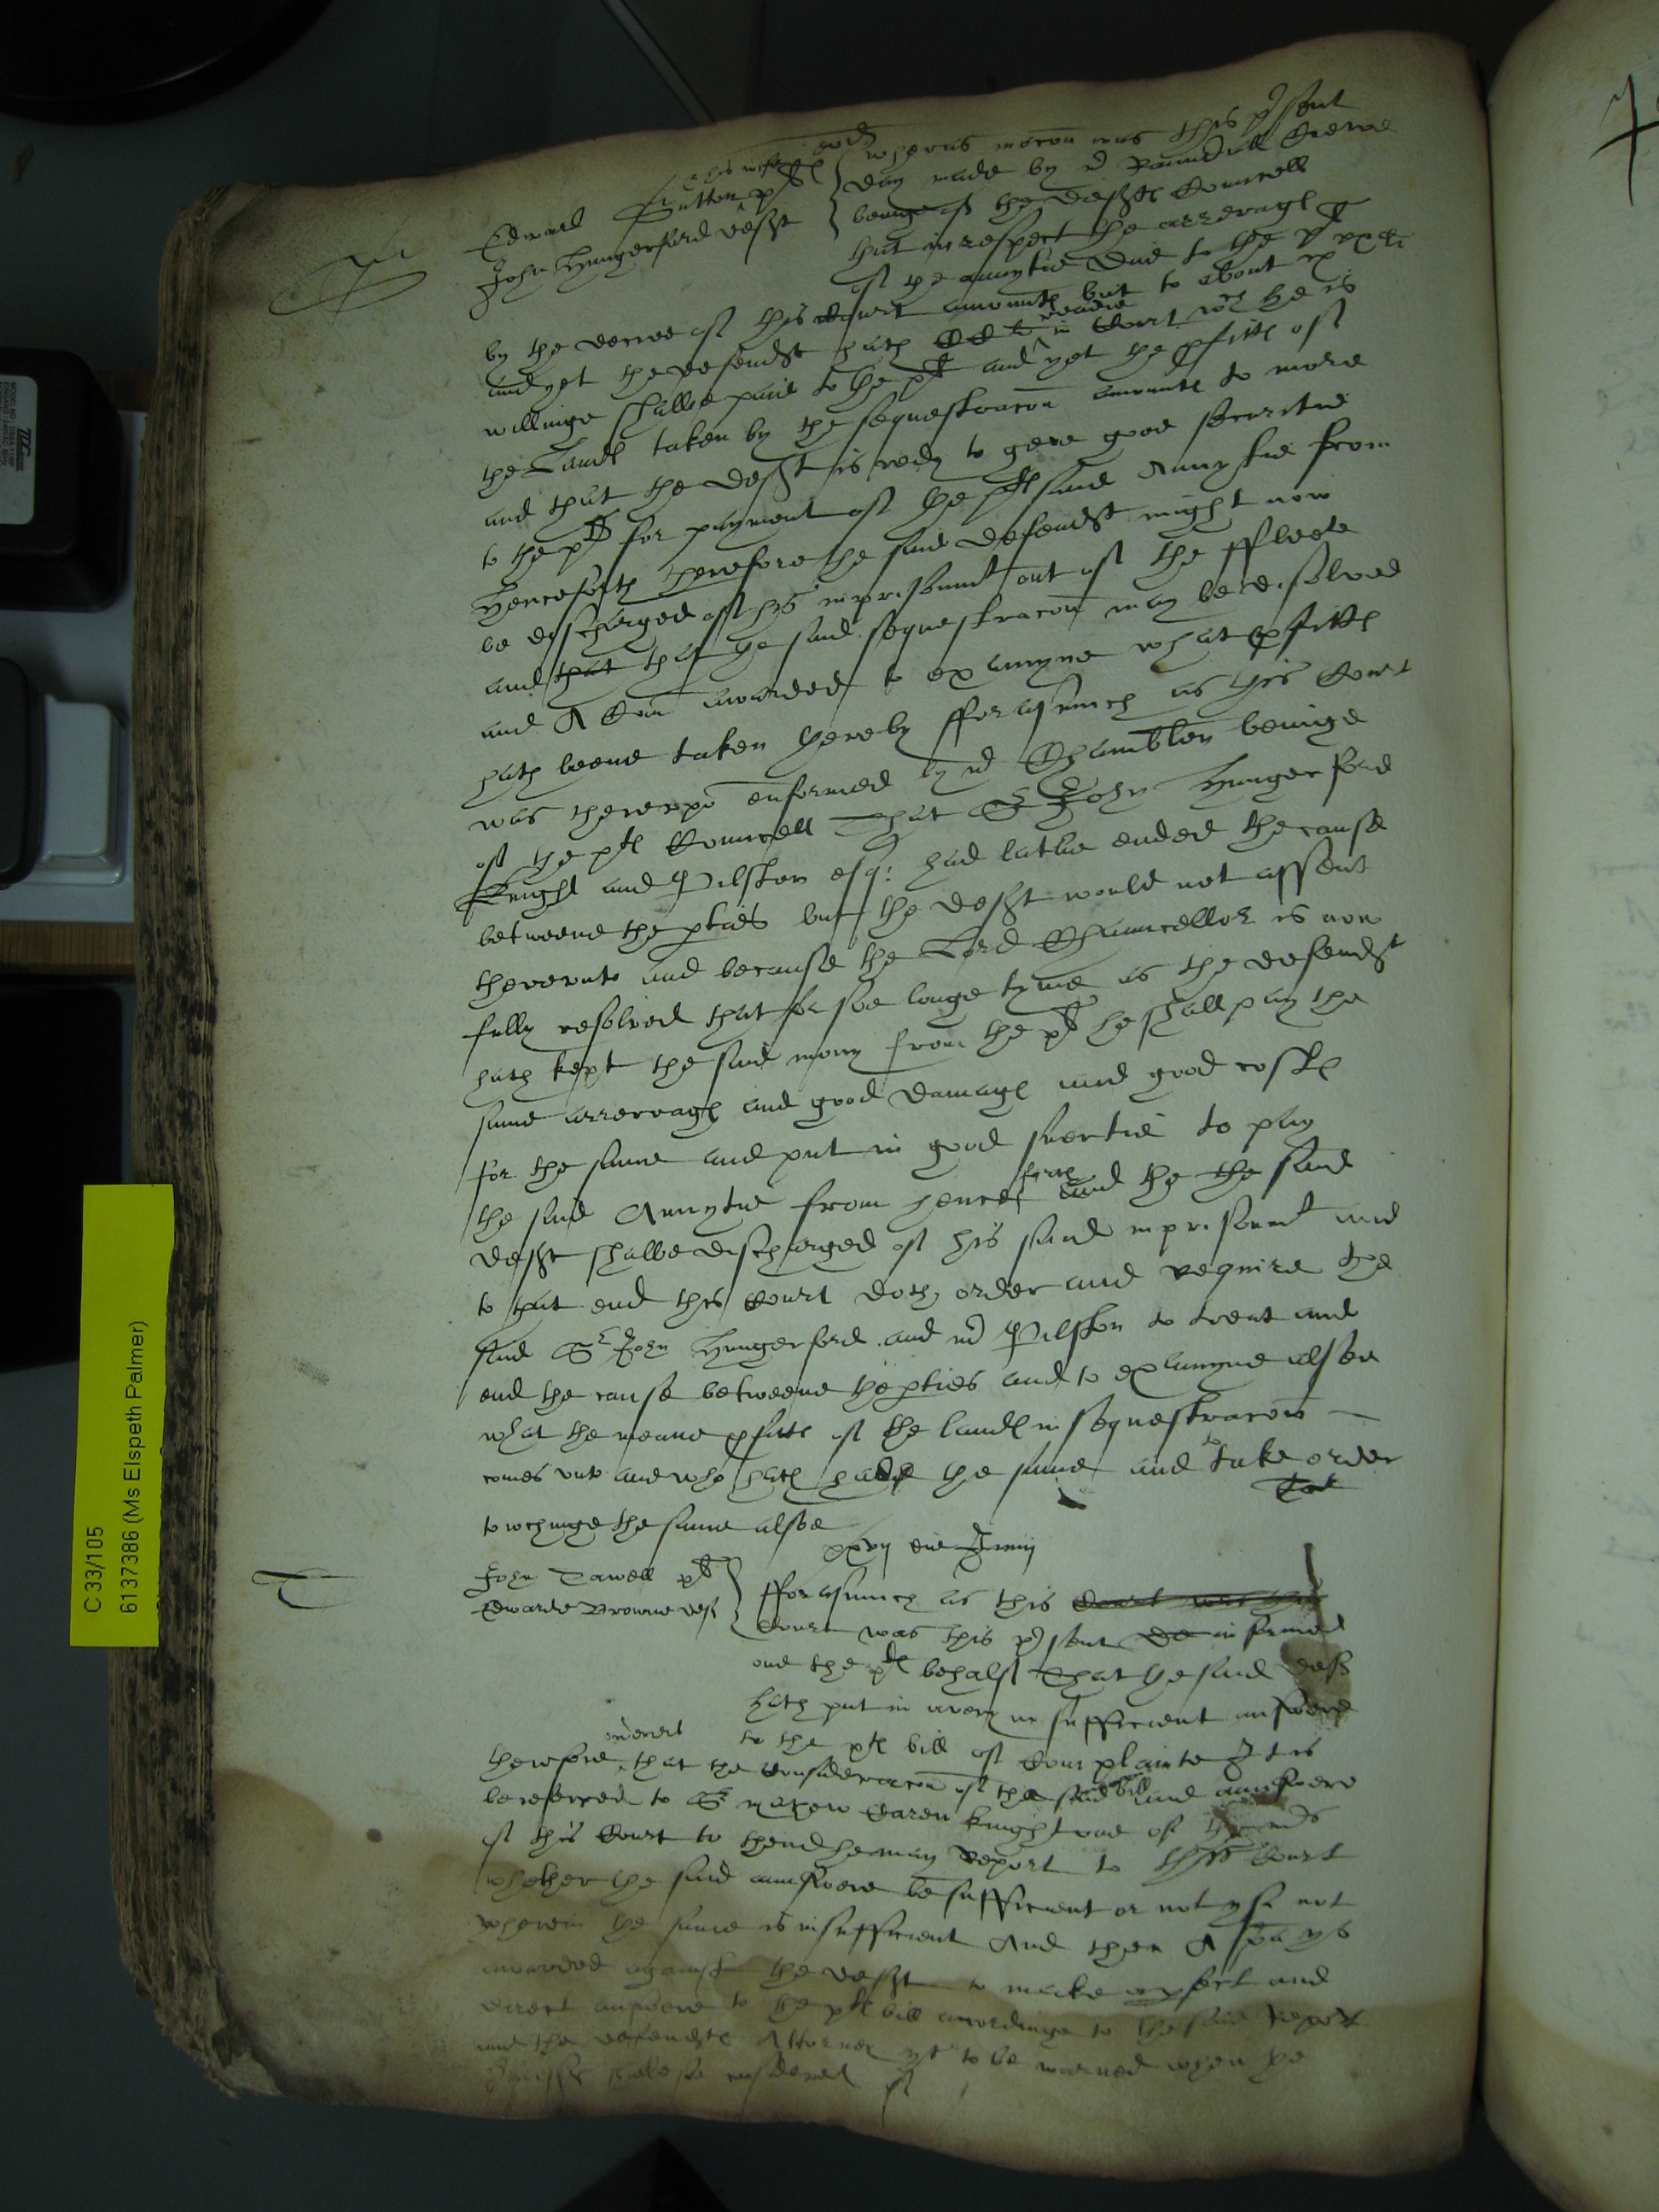 eodē
Edward Sutton & his wife pl
John Hungerford defft
whereas mocon was this p̄sent
day made by mr Raundull Crewe
beinge of the defftꝭ Councell
that in respect the arreragꝭ
of the annytie due to the pl
by the decree of this Court amountꝭ but to about
and yet the defendt hath readie in Court wch he is
willinge shalbe paid to the pl and yet the pfittꝭ of
the Landꝭ taken by the sequestracon amountꝭ to more
and that the defft is redy to geve good securitie
to the pl for payment of the plꝭ said Annytie from
henceforth therefore the said defendt might now
be discharged of his imprisonmt out of the ffleete
and that that the said sequestracon may be disolved
and A Com awarded to examyne what pfittꝭ
hath beene taken thereby fforasmuch as this Court
was thereupō enformed by mr Chamblen beinge
of the plꝭ Councell That Sr John Hungerford
Knight and Pilston esq: had latlie ended the cause
betweene the pties but the defft would not assent
therevnto and because the Lord Chauncellor is now
fully resolved that for soe longe tyme as the defendt
hath kept the said mony from the pl he shall pay the
same arreragꝭ and good damagꝭ and good costꝭ
for the same and put in good suertie to pay
the said Annytie from hencefforth and the the said
defft shalbe discharged of his said imprisonmt and
to that end this Court doth order and require the
said Sr John Hungerford and mr Pilston to treat and
end the cause betweene the pties and to examyne alsoe
what the meane pfittꝭ of the landꝭ in sequestracon
comes vnto and who hath had the same and to take order
towchinge the same alsoe
xxvij die Junij
John Tawell pl
Edwarde Browne def
fforasmuch as this Court was this
Court was this p̄sent informed
one the plꝭ behalf That the said deff
hath put in a very insufficient answere
to the plꝭ bill of Complainte It is
therefore ordered that the consideracon of the said bill and aunswere
be referred to Sr mathew Carew knight one of the mrs
of this Court to thend he may report to this Court
whether the said aunswere be sufficient or not yf not
wherein the same is insufficient And then A spa ys
awarded against the defft to make a pfect and
direct answere to the plꝭ bill accordinge to the said Report
and the defendtꝭ Attorney ys to be warned when the
shalbe considered of
C 33/105
6137386 (Ms Elspeth Palmer)